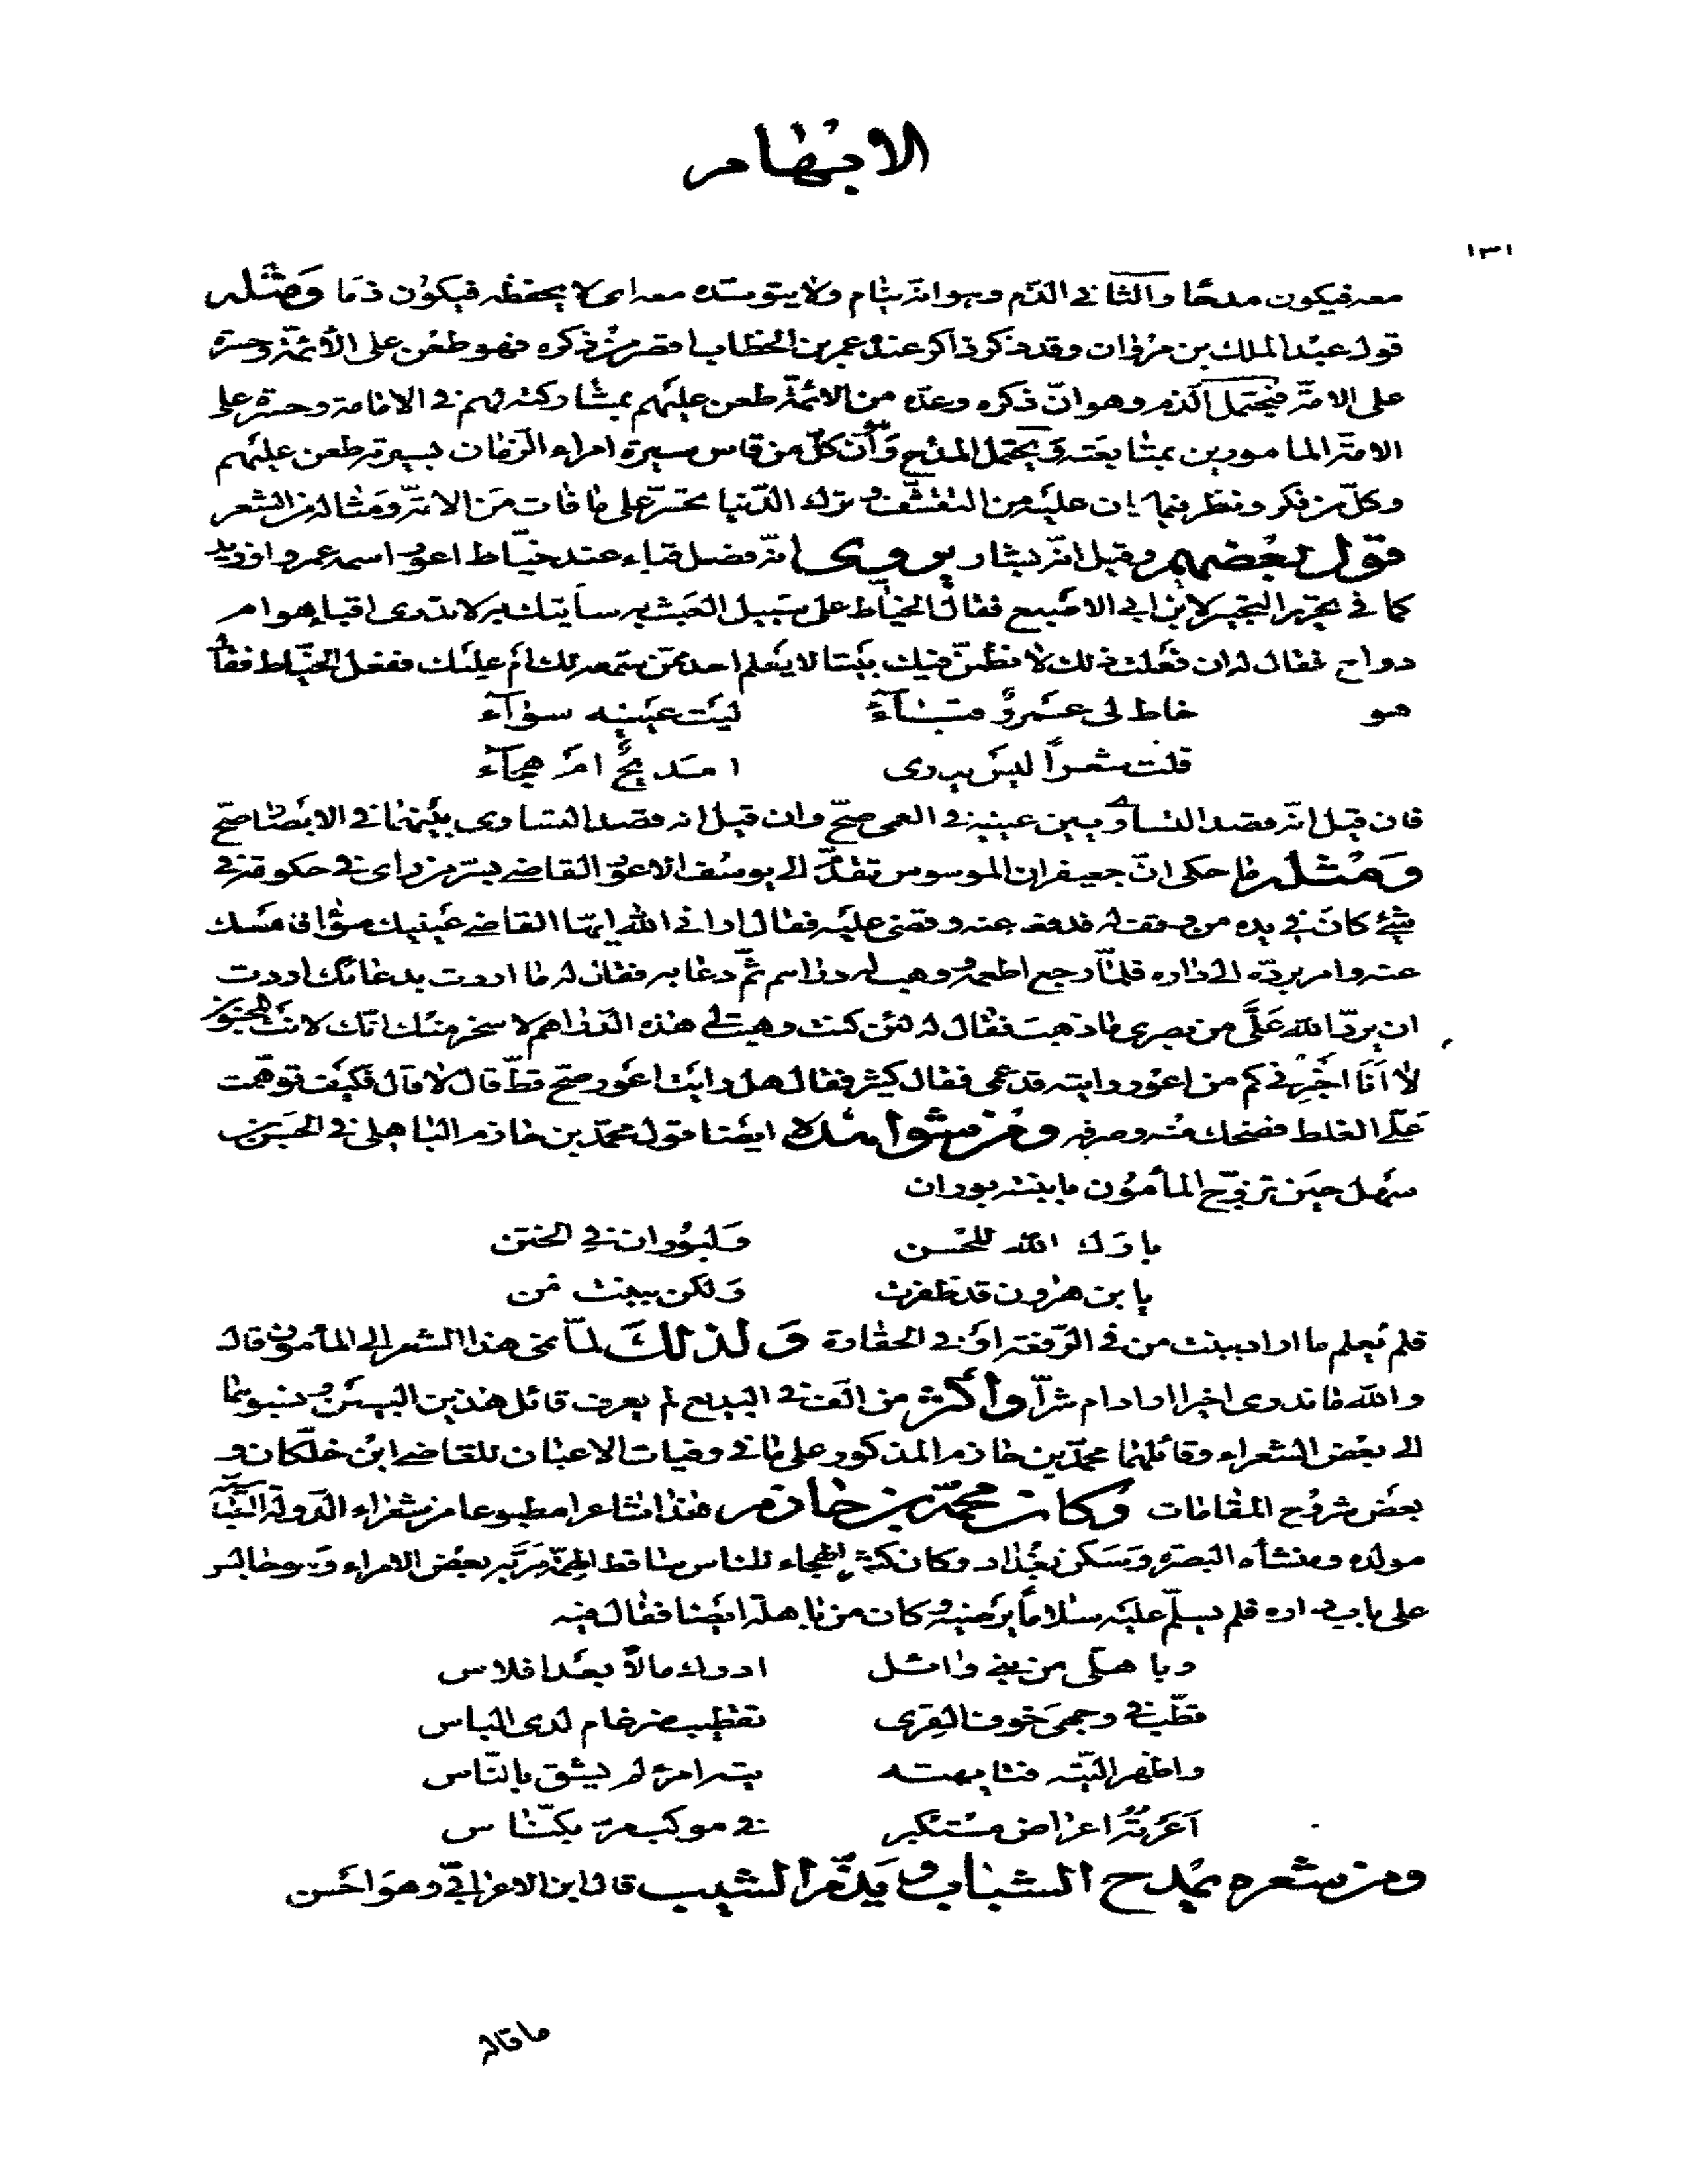 الابهام
١٣١
معه فيكون مدحا والثاني الذم وهو انه ينام ولا يتوسده معه اى لا يحفظه فيكون ذما ومثله
قول عبد الملك بن مروان وقد ذكر ذاكر عنده عمر بن الخطاب اقصر من ذكره فهو طعن على الأئمة وحسرة
على الامة فيحتمل الذم وهو انّ ذكره وعدّه من الائمّة طعن عليهم بمشاركته لهم في الامامة وحسرة على
الامة المامورين بمتابعته ويحتمل المدح وهو أن كلّ من قاس سيرة امراء الزمان بسيرته طعن عليهم
وكلّ من فكر ونظر فيما كان عليه من التقشّف وترك الدّنيا تحسّر على ما فات من الامة ومثاله من الشعر
قول بعضهم وقيل انّه بشار يروى انّه فصل قباء عند خيّاط اعور اسمه عمرو او زيد
كما في تحرير التحبير لابن ابي الاصبع فقال الخيّاط على سبيل العبث به سآتيك به لا تدرى اقباء هو ام
دواج فقال له ان فعلت ذلك لانظمنّ فيك بيتا لا يعلم احد ممّن سمعه لك ام عليك ففعل الخيّاط فقال
هو خاط لى عمرو قبآء ليت عينيه سوآء
قلت شعراً ليس يدرى امديح ام هجآء
فان قيل انّه قصد التساوى بين عينيه في العمى صحّ وان قيل انه قصد التساوى بينهما في الابصار صحّ
ومثله ما حكى انّ جعيفران الموسوس تقدّم الى يوسف الاعور القاضي بسرّ من راى في حكومة في
شيء كان في يده من وقف له فدفعه عنه وقضى عليه فقال اراني الله ايها القاضي عينيك سواء فامسك
عنه وامر بردّه الى داره فلمّا رجع اطعمه ووهب له دراهم ثمّ دعا به فقال له ما اردت بدعائك اردت
ان يردّ الله عَلَيَّ من بصري ما ذهب فقال له لئن كنت وهبت لي هذه الدراهم لاسخر منك انّك لانت المجنون
لا اَنَا اخبرني كم من اعور رايته قد عمى فقال كثير فقال هل رايت اعور صح قطّ قال لا قال فكيف توهمت
عَلَيّ الغلط فضحك منه وصرفه ومن شواهده ايضا قول محمد بن حازم الباهلى في الحسن بن
سهل حين تزوّج المأمون بابنته بوران
بارك الله للحسن ولبوران في الختن
يا بن هرون قد ظفرت ولكن ببنت من
فلم يعلم ما اراد ببنت من في الرّفعة او في الحقارة ولذلك لمّا نمى هذا الشعر الى المأمون قال
والله ما ندرى اخيرا اراد ام شرّاً وأكثر من الّف في البديع لم يعرف قائل هذين البيتين ونسبوهما
الى بعض الشعراء وقائلهما محمّد بن حازم المذكور على ما في وفيات الاعيان للقاضي ابن خلّكان و
بعض شروح المقامات وكان محمّد بن حازم هذا شاعرا مطبوعا من شعراء الدّولة العبّاسيّة
مولده ومنشأه البصرة وسكن بغداد وكان كثير الهجاء للناس ساقط الهمّة مَرَّ به بعض الامراء وهو جالس
على باب داره فلم يسلّم عليه سلاماً يرضيه وكان من باهلة ايضا فقال فيه
وباهلّى من بني وائل ادرك مالاً بعد افلاس
قطّب في وجهى خوف القرى تقطيب ضرغام لدى الباس
واظهر التّيه فتايهته تيه امرئ لم يشق بالنّاس
آعرته اعراض مستكبر في موكب مرّ بكنّاس
ومن شعره يمدح الشباب ويذمّ الشيب قال ابن الاعرابيّ وهو احسن
ما قال